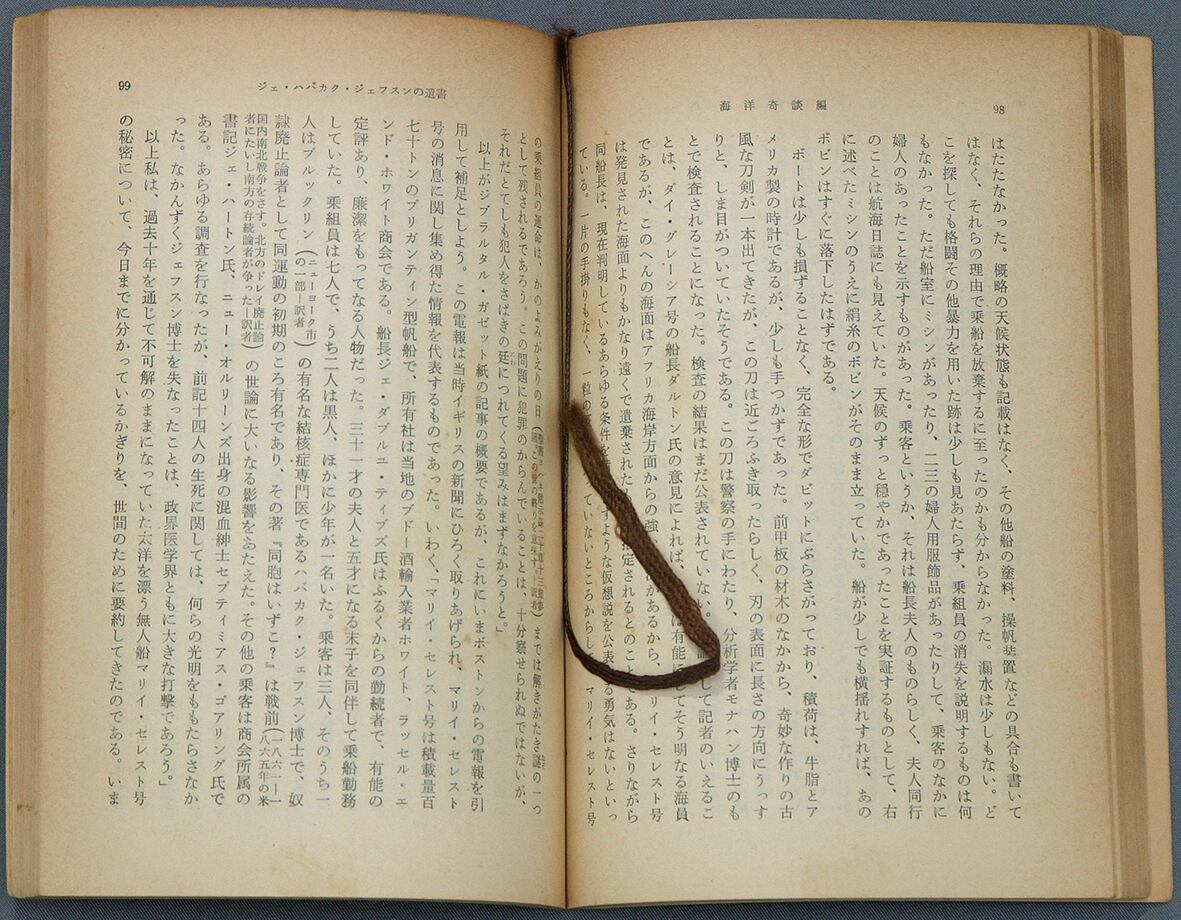 98
海洋奇談編
はたたなかった。概略の天候状態も記載はなく、その他船の塗料、操帆装置などの具合も書いて
はなく、それらの理由で乗船を放棄するに至ったのかも分からなかった。漏水は少しもない。ど
こを探しても格闘その他暴力を用いた跡は少しも見あたらず、乗組員の消失を説明するものは何
もなかった。ただ船室にミシンがあったり、二三の婦人用服飾品があったりして、乗客のなかに
婦人のあったことを示すものがあった。乗客というか、それは船長夫人のものらしく、夫人同行
のことは航海日誌にも見えていた。天候のずっと穏やかであったことを実証するものとして、右
に述べたミシンのうえに絹糸のボビンがそのまま立っていた。船が少しでも横揺れすれば、あの
ボビンはすぐに落下したはずである。
ボートは少しも損ずることなく、完全な形でダビットにぶらさがっており、積荷は、牛脂とア
メリカ製の時計であるが、少しも手つかずであった。前甲板の材木のなかから、奇妙な作りの古
風な刀剣が一本出てきたが、この刀は近ごろふき取ったらしく、刃の表面に長さの方向にうっす
りと、しま目がついていたそうである。この刀は警察の手にわたり、分析学者モナハン博士のも
とで検査されることになった。検査の結果はまだ公表されていない。して記者のいえるこ
とは、ダイ・グレーシア号の船長ダルトン氏の意見によれば、は有能にしてそう明なる海員
であるが、このへんの海面はアフリカ海岸方面からの強があるから、リイ・セレスト号
は発見された海面よりもかなり遠くで遺棄された推定されるとのことである。さりながら
同船長は、現在判明しているあらゆる条件をすような仮想説を公表する勇気はないといっ
ている。一片の手掛りもなく、一粒のていないところからして、マリイ・セレスト号
99
ジェ・ハバカク・ジェフスンの遺書
の乗組員の運命は、かのよみがえりの日までは解きがたき謎の一つ
として残されるであろう。この問題に犯罪のからんでいることは、十分察せられぬではないが、
それだとてしも犯人をさばきの廷につれてくる望みはまずなかろうと。」
以上がジブラルタル・ガゼット紙の記事の概要であるが、これにいまボストンからの電報を引
用して補足としよう。この電報は当時イギリスの新聞にひろく取りあげられ、マリイ・セレスト
号の消息に関し集め得た情報を代表するものであった。いわく、「マリイ・セレスト号は積載量百
七十トンのブリガンティン型帆船で、所有社は当地のブドー酒輸入業者ホワイト、ラッセル・エ
ンド・ホワイト商会である。船長ジェ・ダブルユ・ティブズ氏はふるくからの勤続者で、有能の
定評あり、廉潔をもってなる人物だった。三十一才の夫人と五才になる末子を同伴して乗船勤務
していた。乗組員は七人で、うち二人は黒人、ほかに少年が一名いた。乗客は三人、そのうち一
人はブルックリン（ニューヨーク市の一部―訳者）の有名な結核症専門医であるハバカク・ジェフスン博士で、奴
隷廃止論者として同運動の初期のころ有名であり、その著『同胞はいずこ？』は戦前（一八六一―一八六五年の米
国内南北戦争をさす。北方のドレイ廃止論者にたいし南方の存続論者が争った―訳者）の世論に大いなる影響をあたえた。その他の乗客は商会所属の
書記ジェ・ハートン氏、ニュー・オルリーンズ出身の混血紳士セプティミアス・ゴアリング氏で
ある。あらゆる調査を行なったが、前記十四人の生死に関しては、何らの光明をももたらさなか
った。なかんずくジェフスン博士を失なったことは、政界医学界ともに大きな打撃であろう。」
以上私は、過去十年を通じて不可解のままになっていた大洋を漂う無人船マリイ・セレスト号
の秘密について、今日までに分かっているかぎりを、世間のために要約してきたのである。いま